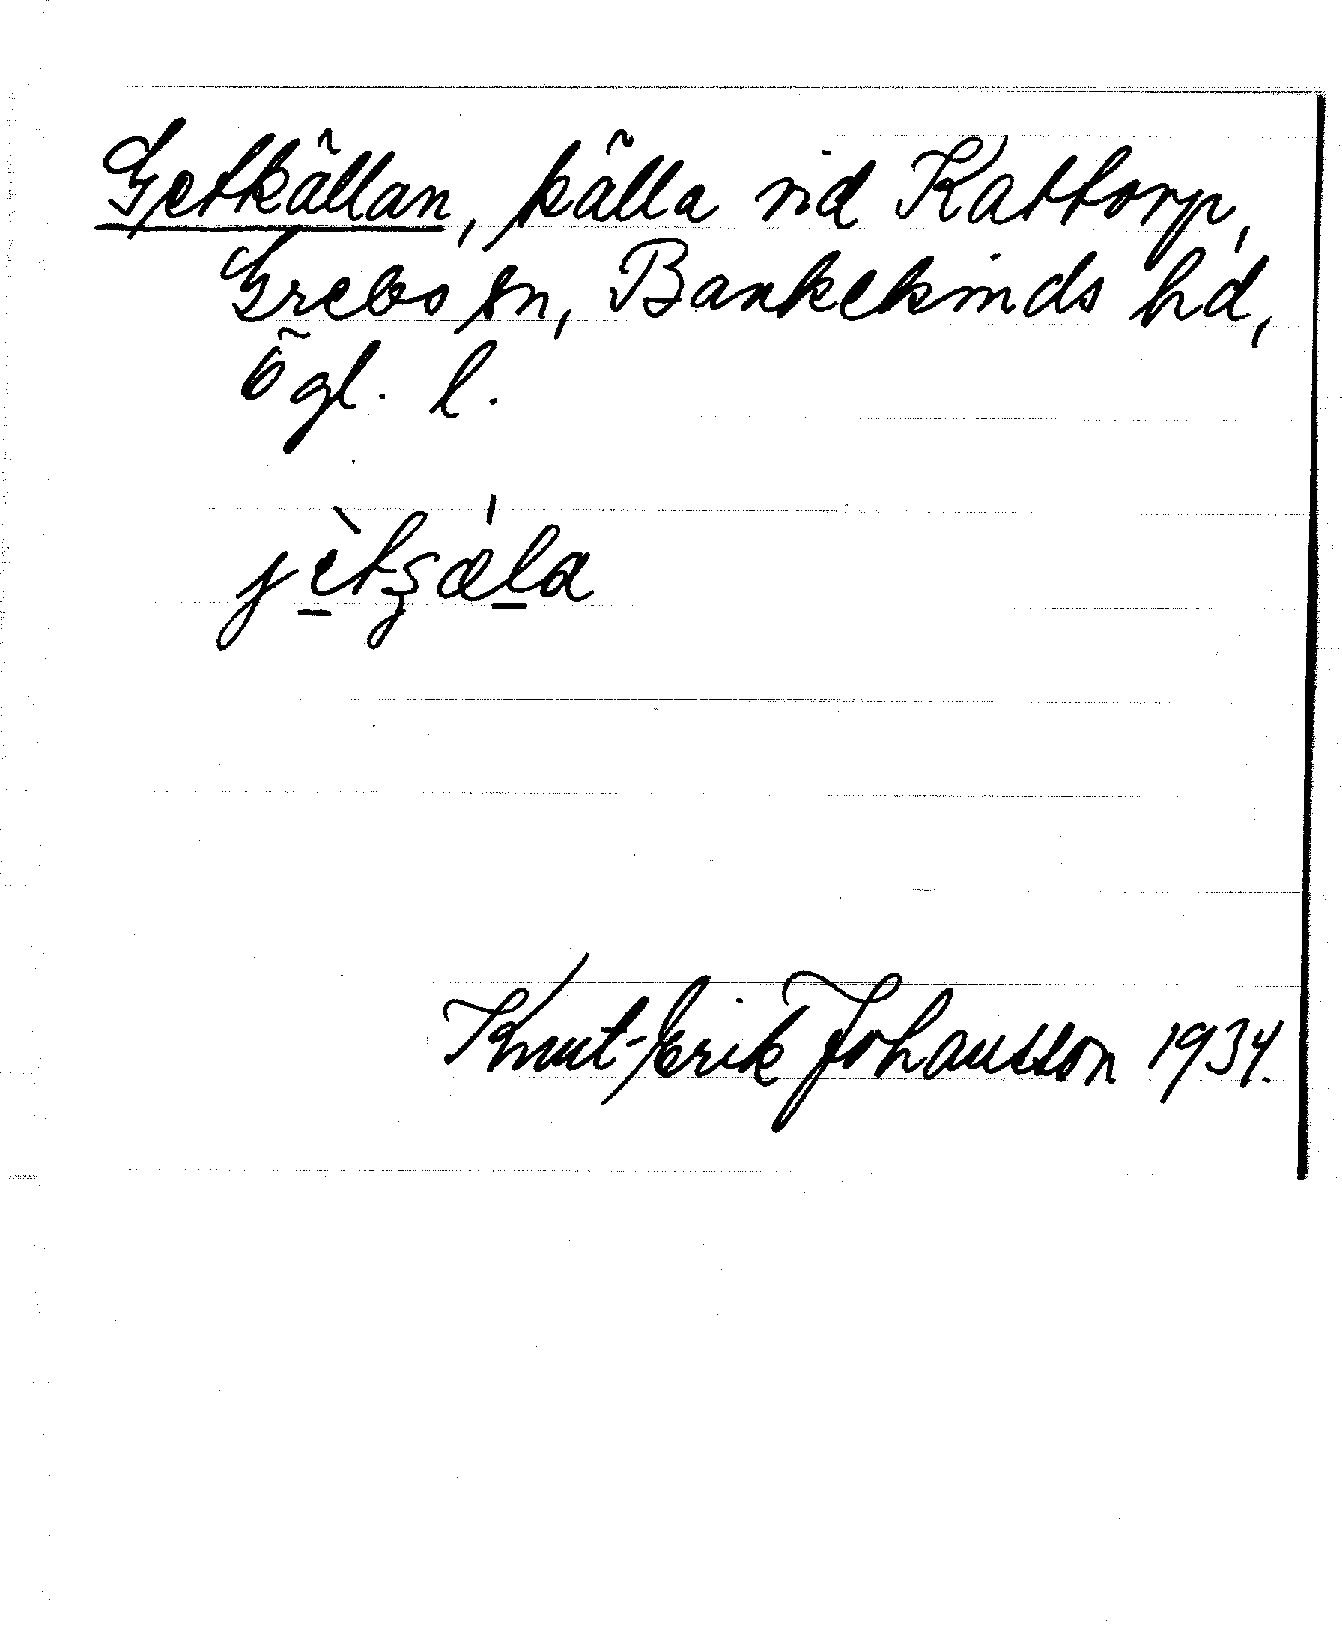 Getkällan, källa vid Kattorp,
Grebo sn, Bankekinds hd,
Ögl. l.
jètʂæ̀la
Knut-Erik Johansson 1934.